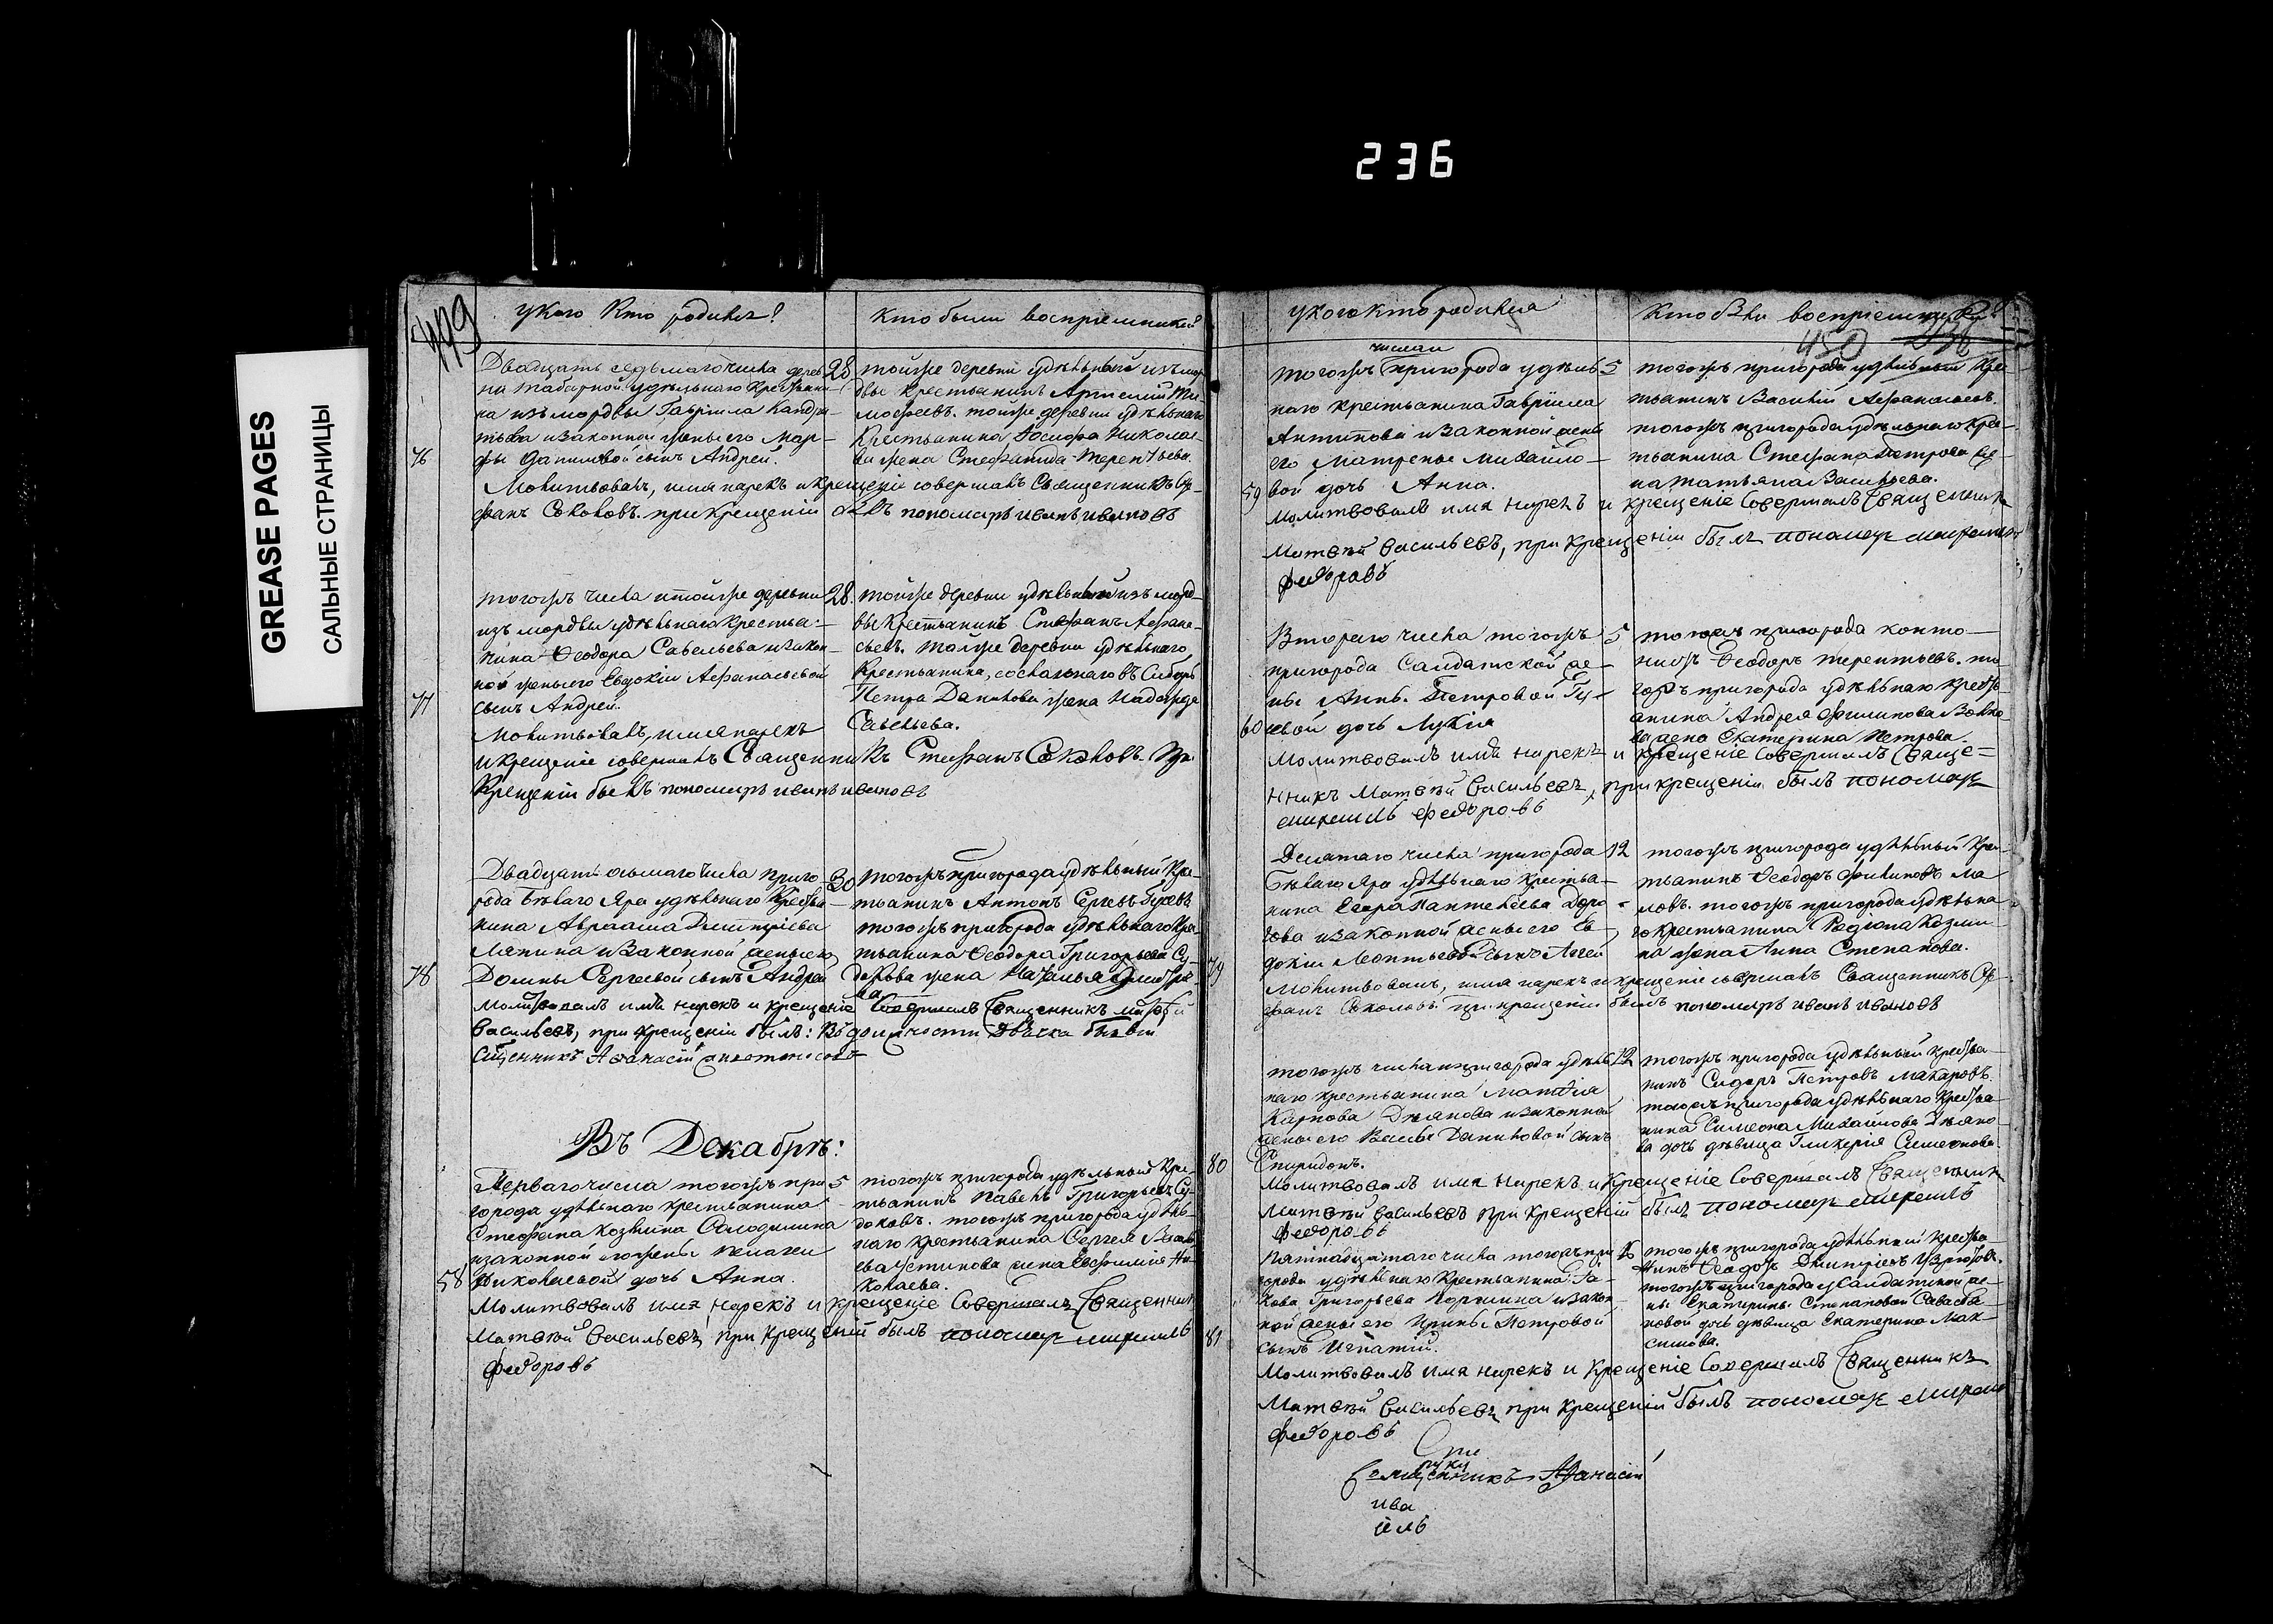 236
GREASE PAGES
САЛЬНЫЕ СТРАНИЦЫ
449
У кого кто родился?
Кто были восприемники?
Двадцать седьмаго числа дерев
ни Табарной удѣльнаго крестьяни-
на изъ мордвы Гавріила Кандра-
тьева и законной жены его Мар-
76
фы Даниловой сынъ Андрей.
28
тойже деревни удѣльный изъ мор
двы крестьянинъ Артемій Ти-
мофеевъ. тойже деревни удѣльнаго
крестьянина Іосифа Никола-
ва жена Стефанида Терентьева.
Молитвовалъ, имя нарекъ и крещеніе совершалъ Священникъ Сте-
фанъ Соколовъ. при крещеніи былъ пономарь Иванъ Ивановъ
тогожъ числа и тойже деревни
изъ мордвы удѣльнаго крестья-
нина Ѳеодора Савельева и закон-
ной жены его Евдокіи Афанасьевой
77
сынъ Андрей.
28.
тойже деревни удѣльный изъ морд-
вы крестьянинъ Стефанъ Афана-
сьевъ. тойже деревни удѣльнаго
крестьянина, сосланнаго въ Сибирь
Петра Данилова жена Надежда
Савельева.
Молитвовалъ, имя нарекъ
и крещеніе совершалъ Священникъ Стефанъ Соколовъ. При
крещеніи былъ пономарь Иванъ Ивановъ
Двадцать осьмаго числа приго
рода Бѣлаго Яра удѣльнаго крестья-
нина Авраама Дмитріева
Лямина и законной жены его
78
Домны Сергеевой сынъ Андрей
30
тогожъ пригорода удѣльный кре
стьянинъ Антонъ Сергевъ Гуревъ
тогожъ пригорода удѣльнаго кре-
стьянина Ѳеодора Григорьева Су-
докова жена Наталья Дмитріе-
ва.
Молитвовалъ имя нарекъ и крещеніе Совершалъ Священникъ Матѳей
Васильевъ, при крещеніи былъ: Въ должности дьячка бывый
Сщенникъ Аѳанасій
Въ Декабрѣ:
Перваго числа тогожъ при
города удѣльнаго крестьянина
Стефана Козмина Солодилина
и законной его жены Пелагеи
58
Николаевой дочь Анна.
5
тогожъ пригорода удѣльный кре-
стьянинъ Павелъ Григорьевъ Су-
доковъ. тогожъ пригорода удѣль-
наго крестьянина Сергея Васил
ева Устинова жена Евфимія Ни-
колаева.
Молитвовалъ имя нарекъ и крещеніе Совершалъ Священник
Матѳей Васильевъ, при крещеніи былъ пономарь Михаилъ
Федоровъ
У кого кто родился
Кто были восприемники
450
числаи
тогожъ пригорода удѣль
наго крестьянина Гавріила
Антипова и законной жены
его Матрены Михайло-
59
вой дочь Анна.
5
тогожъ пригорода удѣльный кре
стьянинъ Василій Афанасьевъ.
тогожъ пригорода удѣльнаго кре-
стьянина Стефана Петрова же
на Татьяна Васильева.
Молитвовалъ имя нарекъ и крещеніе Совершалъ Священник
Матѳей Васильевъ, при крещеніи былъ пономарь Михаилъ
Федоровъ
Втораго числа тогожъ
пригорода Салдатской же-
ны Анны Петровой Гу-
60
евой дочь Лукія
5
тогожъ пригорода конто-
нистъ Ѳеодоръ Терентьевъ. то
гожъ пригорода удѣльнаго кресть-
янина Андрея Филипова Волко-
ва жена Екатерина Петрова.
Молитвовалъ имя нарекъ и крещеніе Совершалъ Свяще-
нникъ Матѳей Васильевъ, при крещеніи былъ пономарь
Михаилъ Федоровъ
Десятаго числа пригорода
Бѣлаго Яра удѣльнаго крестья-
нина Егора Пантелѣева Доро-
гова и законной жены его Ев-
79
докіи Леонтьевой сынъ Агей
12
тогожъ пригорода удѣльный кре-
стьянинъ Ѳеодоръ Филиповъ Ма
ловъ. тогожъ пригорода удѣльна-
го крестьянина Родіона Козми-
на жена Анна Степанова.
Молитвовалъ, имя нарекъ и крещеніе совершалъ Священникъ Сте-
фанъ Соколовъ. при крещеніи былъ пономарь Иванъ Ивановъ
тогожъ числа и пригорода удѣль
наго крестьянина Матвѣя
Карпова Дѣянова и законной
жены его Васы Даниловой сынъ
80
Спиридонъ.
12
тогожъ пригорода удѣльный крестья-
нинъ Сидоръ Петровъ Макаровъ.
тогожъ пригорода удѣльнаго крестья-
нина Симеона Михайлова Дѣяно-
ва дочь дѣвица Гликерія Симеонова.
Молитвовалъ имя нарекъ и крещеніе Совершалъ Священник
Матѳей Васильевъ при крещеніи былъ пономарь Михаилъ
Федоровъ
Пятнадцатаго числа тогожъ при
города удѣльнаго крестьянина Га-
кова Григорьева Горшина и закон
ной жены его Ирины Петровой
81
сынъ Игнатій.
тогожъ пригорода удѣльный крестья-
нинъ Ѳеодоръ Дмитріевъ
тогожъ пригорода Салдатской же-
ны Екатерины Степановой Савасте-
новой дочь дѣвица Екатерина Мак-
симова.
Молитвовалъ имя нарекъ и крещеніе Совершалъ Священникъ
Матѳей Васильевъ, при крещеніи былъ пономарь Михаил
Федоровъ
Аѳанасій